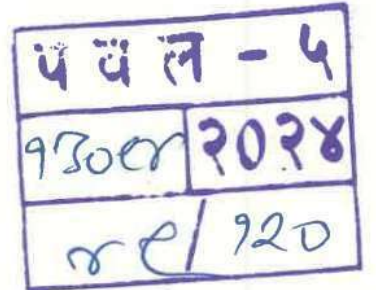 प वे ल - ५
१३०९४ २०२४
४९/१२०